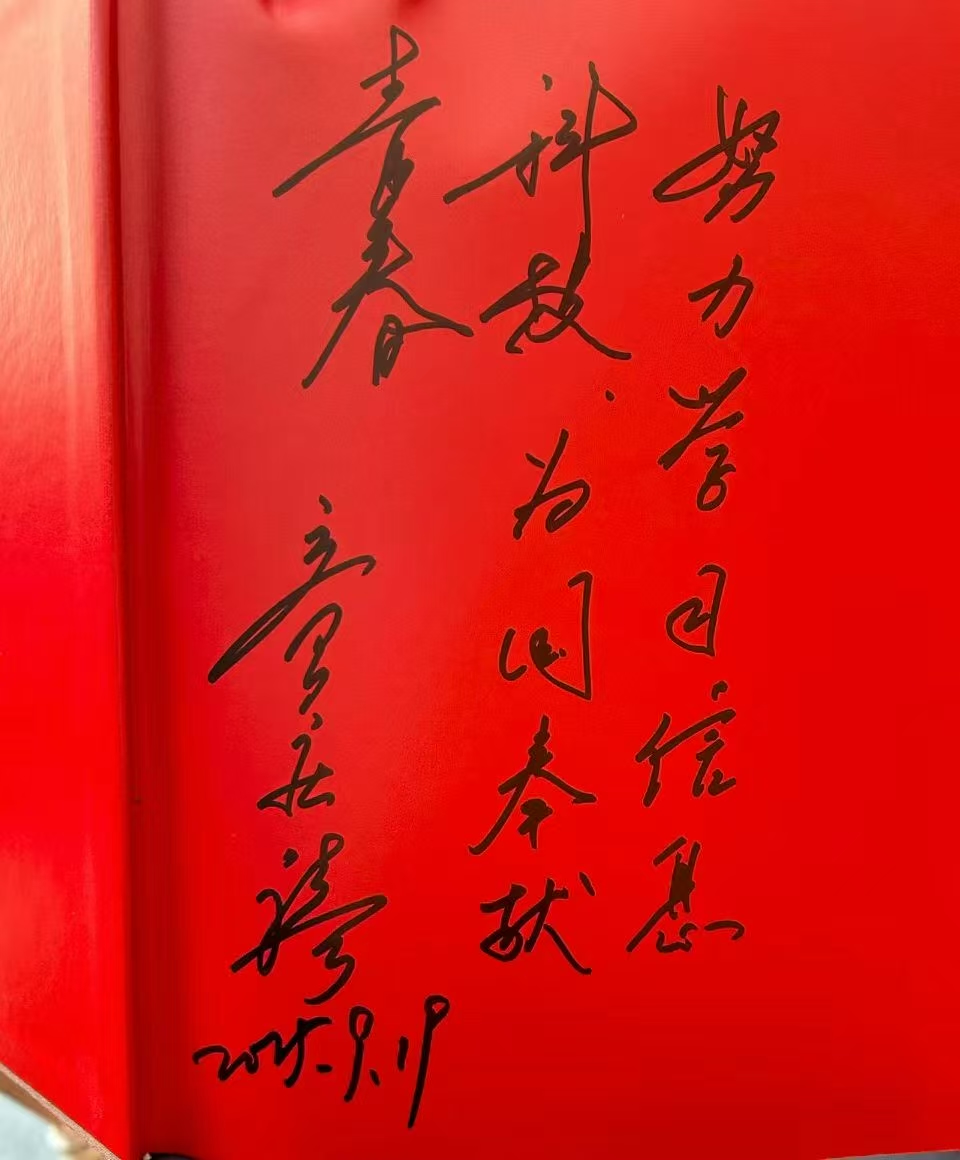 努力学习信息
科技、为国奉献
青春
童庆禧
2025.9.19